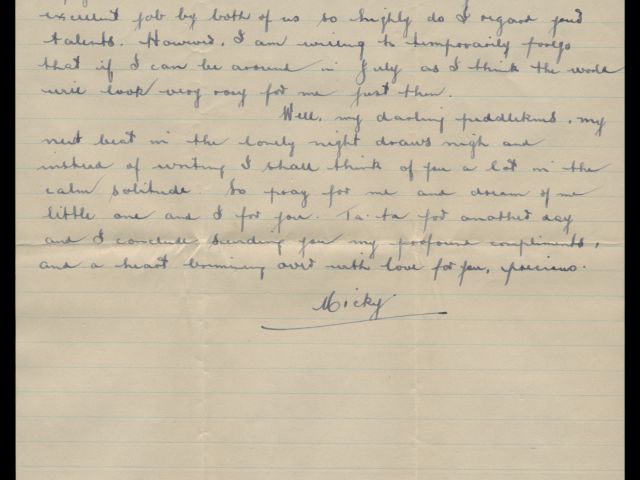 excellent job by both of us so highly do I regard your
talents. However, I am willing to temporarily forgo
that if I can be around in July as I think the world
will look very rosy for me just then.
Well, my darling puddlekins, my
next beat in the lonely night draws nigh and
instead of writing I shall think of you a lot in the
calm solitude. So pray for me and dream of me
little one and I for you. Ta-ta for another day
and I conclude sending you my profound compliments,
and a heart brimming over with love for you, precious.
Micky